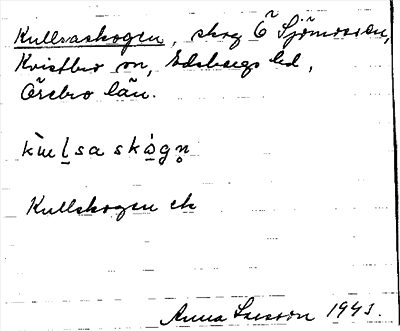 Kullsaskogen, skog Ö Sjömossen,
Kvistbro sn, Edsbergs hd,
Örebro län.
kùḷsaskò̱gṇ
Kullskogen ek
Anna Larsson 1943.